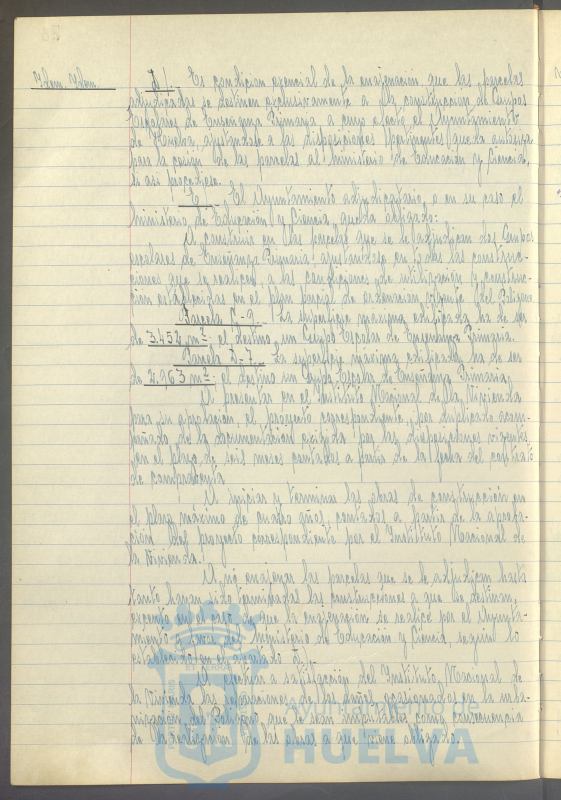 Idem. Idem.
D) Es condición esencial de la enajenación que las parcelas
adjudicadas se destinen exclusivamente a la construcción de Grupos
Escolares de Enseñanza Primaria a cuyo efecto el Ayuntamiento
de Huelva, ajustándose a las disposiciones pertinentes queda autorizado
para la cesión de las parcelas al Ministerio de Educación y Ciencia,
si así procediese.
E) El Ayuntamiento adjudicatario, o en su caso el
Ministerio de Educación y Ciencia queda obligado:
A construir en las parcelas que se le adjudican dos Grupos
escolares de Enseñanza Primaria, ajustándose en todas las construc-
ciones que se realicen, a las condiciones de utilización y construc-
ción establecidas en el plan parcial de ordenación vigente del Polígono
Parcela C-9.- La superficie máxima edificada ha de ser
de 3.452 m², el destino un Grupo Escolar de Enseñanza Primaria.
Parcela D-7.- La superficie máxima edificada ha de ser
de 2.963 m², el destino un Grupo Escolar de Enseñanza Primaria.
A presentar en el Instituto Nacional de la Vivienda
para su aprobación, el proyecto correspondiente, por duplicado acom-
pañado de la documentación exigida por las disposiciones vigentes,
en el plazo de seis meses contados a partir de la fecha del contrato
de compraventa.
A iniciar y terminar las obras de construcción en
el plazo máximo de cuatro años, contados a partir de la aproba-
ción del proyecto correspondiente por el Instituto Nacional de
la Vivienda.
A no enajenar las parcelas que se le adjudican hasta
tanto hayan sido terminadas las construcciones a que se destinan,
excepto en el caso de que la enajenación se realice por el Ayunta-
miento a favor del Ministerio de Educación y Ciencia, según lo
establecido en el apartado D.
A ejecutar a satisfacción del Instituto Nacional de
la Vivienda las reparaciones de los daños ocasionados en la urba-
nización del Polígono, que le sean imputables como consecuencia
de la realización de las obras a que viene obligado.
Ayuntamiento de
HUELVA